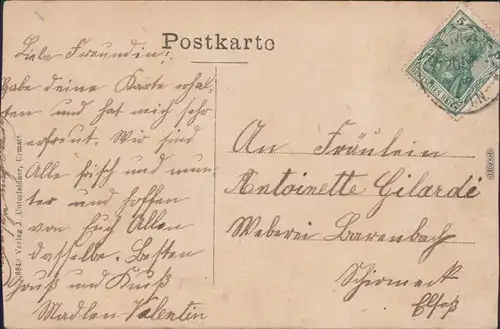 Postkarte
Liebe Freundin!
Habe deine Karte erhal-
ten und hat mich sehr
erfreut. Wir sind
Alle frisch und mun-
ter und hoffen
von Euch Allen
dasselbe. Besten
Gruß und Kuß
Madlen Valentin
An Fräulein
Antoinette Gilardi
Weberei Barenbach
Schirmeck
Elsaß
Verlag J. Untersteller, Urmatt
5
DEUTSCHES REICH